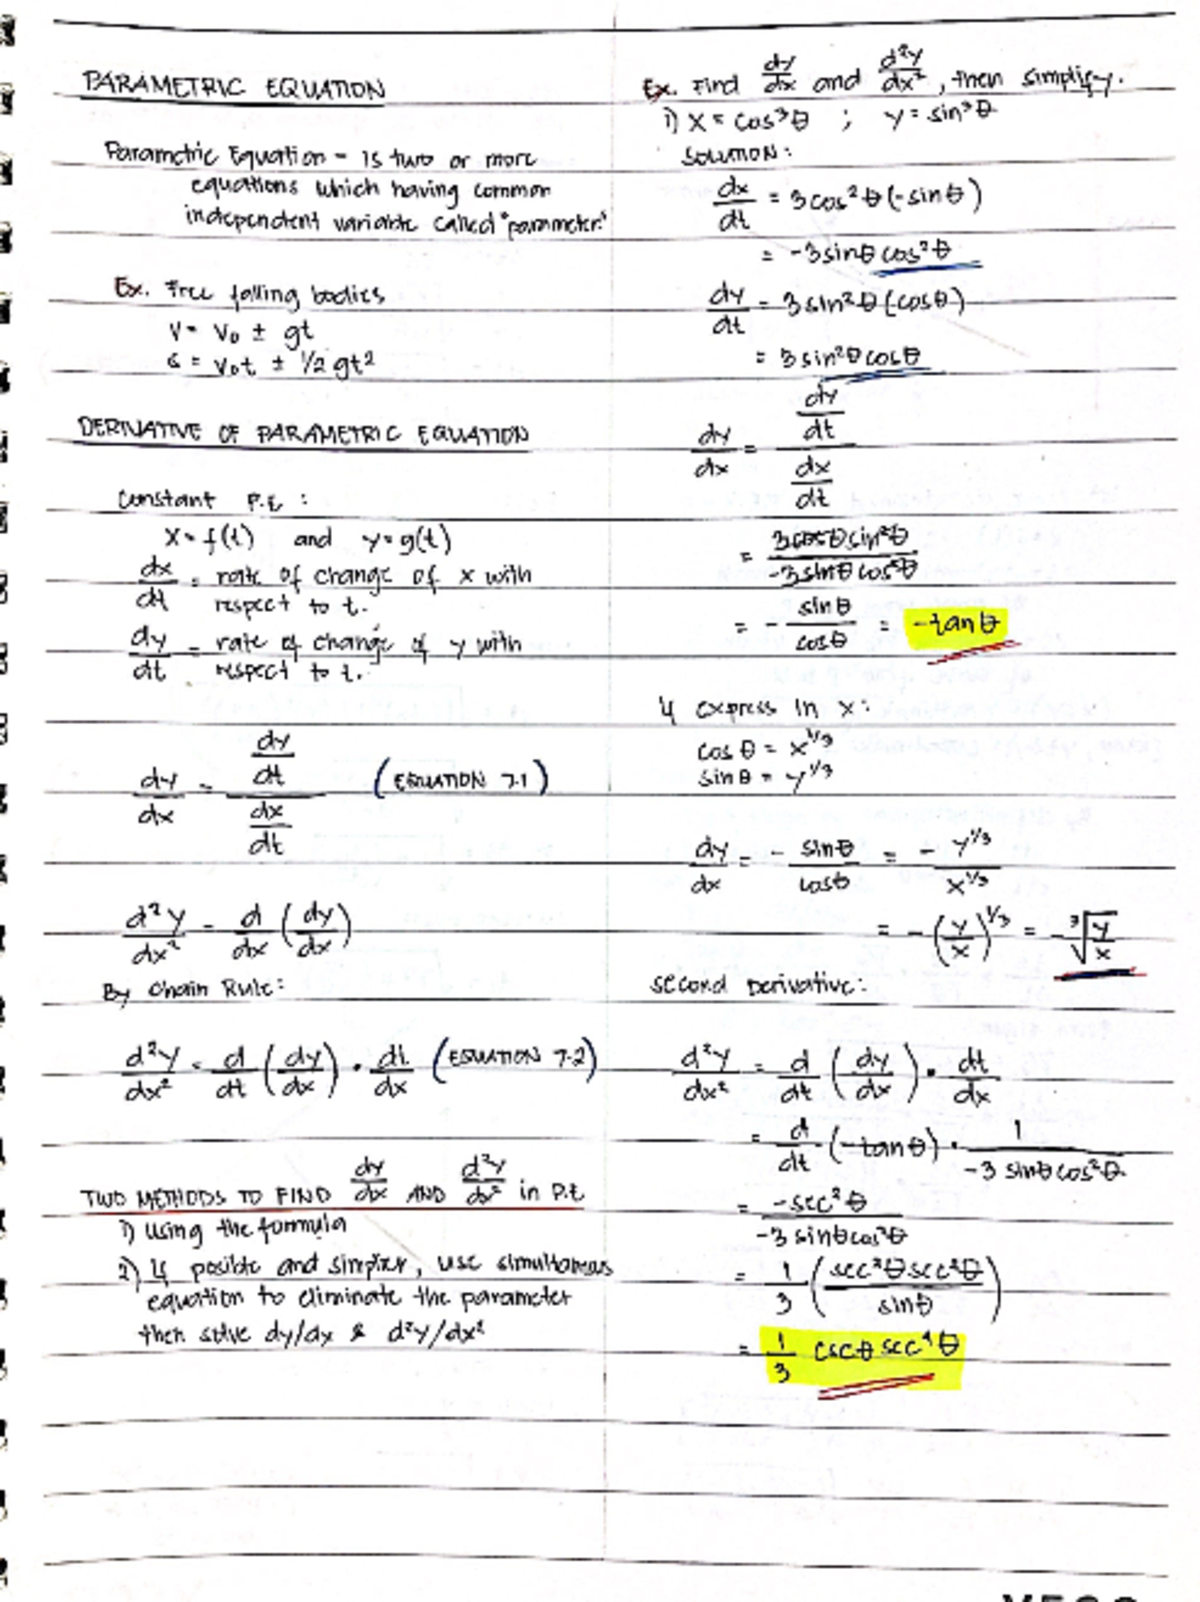 PARAMETRIC EQUATION
Parametric Equation - is two or more
equations which having common
independent variable called "parameter."
Ex. Free falling bodies
V = V₀ ± gt
s = V₀t ± 1/2 gt²
DERIVATIVE OF PARAMETRIC EQUATION
Constant P.E :
x = f(t) and y = g(t)
dx/dt = rate of change of x with
respect to t.
dy/dt = rate of change of y with
respect to t.
dy/dx = (dy/dt)/(dx/dt) (EQUATION 7.1)
d²y/dx² = d/dx (dy/dx)
By Chain Rule:
d²y/dx² = d/dt (dy/dx) · dt/dx (EQUATION 7.2)
TWO METHODS TO FIND dy/dx AND d²y/dx² in P.E
1) Using the formula
2) If posible and simplier, use simultaneous
equation to eliminate the parameter
then solve dy/dx & d²y/dx²
Ex. Find dy/dx and d²y/dx², then simplify.
1) x = cos³θ ; y = sin³θ
SOLUTION:
dx/dt = 3cos²θ(-sinθ)
= -3sinθcos²θ
dy/dt = 3sin²θ(cosθ)
= 3sin²θcosθ
dy/dx = (dy/dt)/(dx/dt)
= 3cosθsin²θ/-3sinθcos²θ
= - sinθ/cosθ = -tanθ
If express in x:
cosθ = x^1/3
sinθ = y^1/3
dy/dx = - sinθ/cosθ = - y^1/3/x^1/3
= -(y/x)^1/3 = -∛(y/x)
Second Derivative:
d²y/dx² = d/dt (dy/dx) · dt/dx
= d/dt (-tanθ) · 1/-3sinθcos²θ
= -sec²θ/-3sinθcos²θ
= 1/3 (sec²θsec²θ/sinθ)
= 1/3 cscθsec⁴θ